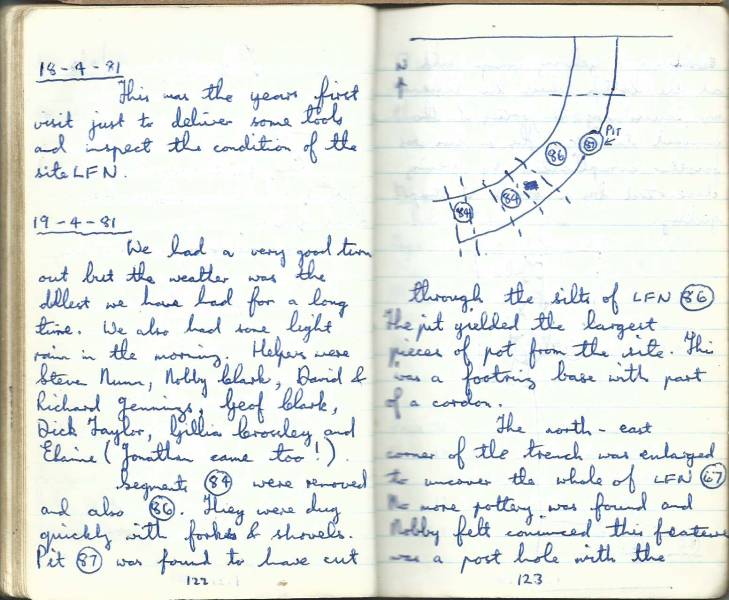 18-4-81
This was the years first
visit just to deliver some tools
and inspect the condition of the
site LFN.
19-4-81
We had a very good turn
out but the weather was the
dullest we have had for a long
time. We also had some light
rain in the morning. Helpers were
Steven Nunn, Nobby Clark, David &
Richard Jennings, Geof Clark,
Dick Taylor, Gillia Crossley and
Elaine (Jonathan came too!).
Segments 84 were removed
and also 86. They were dug
quickly with forks & shovels.
Pit 87 was found to have cut
122
N
PIT
87
86
84
84
through the silts of LFN 86
The pit yielded the largest
pieces of pot from the site. This
was a footring base with part
of a cordon.
The north-east
corner of the trench was enlarged
to uncover the whole of LFN 67
No more pottery was found and
Nobby felt convinced this feature
was a post hole with the
123